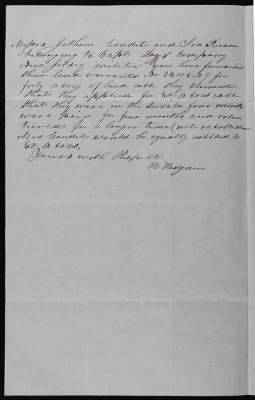 Messrs Jotham Condit and Ira Pierson
belonging to Capt Days Company
New Jersey militia you have forwarded
their land warrants No 24,108-59 for
forty acres of land each they claimed
that they applied for 80 acres each
that they were in the service four months
were paid for four months and volun
teered for a longer time (not
Condit would be equally entitled to
80 acres.
Yours with Respect